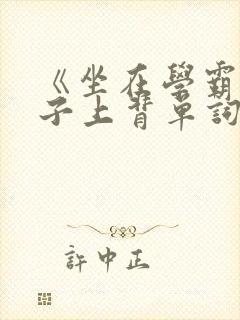 《坐在學霸
子上背單詞
許中正